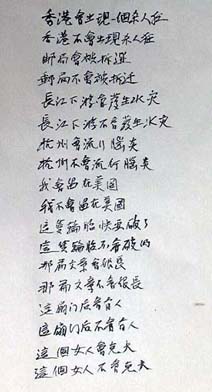 香港會出現一個杀人狂
香港不會出現杀人狂
邮局會被拆迁
邮局不會被拆迁
長江下游會發生水灾
長江下游不會發生水灾
杭州會流行腦炎
杭州不會流行腦炎
我會留在美國
我不會留在美國
這隻輪胎快要破了
這隻輪胎不會破的
那篇文章會很長
那篇文章不會很長
這扇门后有人
這扇门后不會有人
這個女人會克夫
這個女人不會克夫